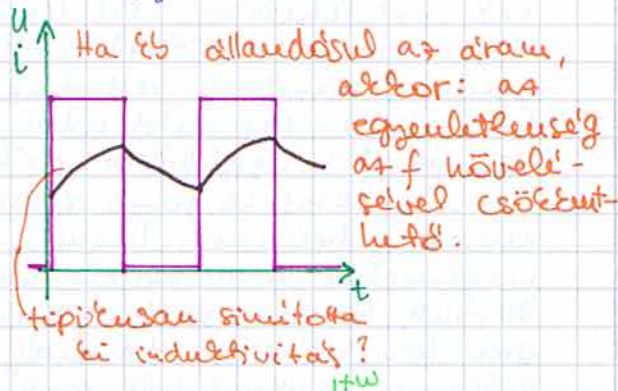 U
i
Ha és állandósul az áram,
akkor: az
egyenletlenség
az f növelé-
sével csökkent-
hető.
t
tipikusan simította
ki induktivitás?